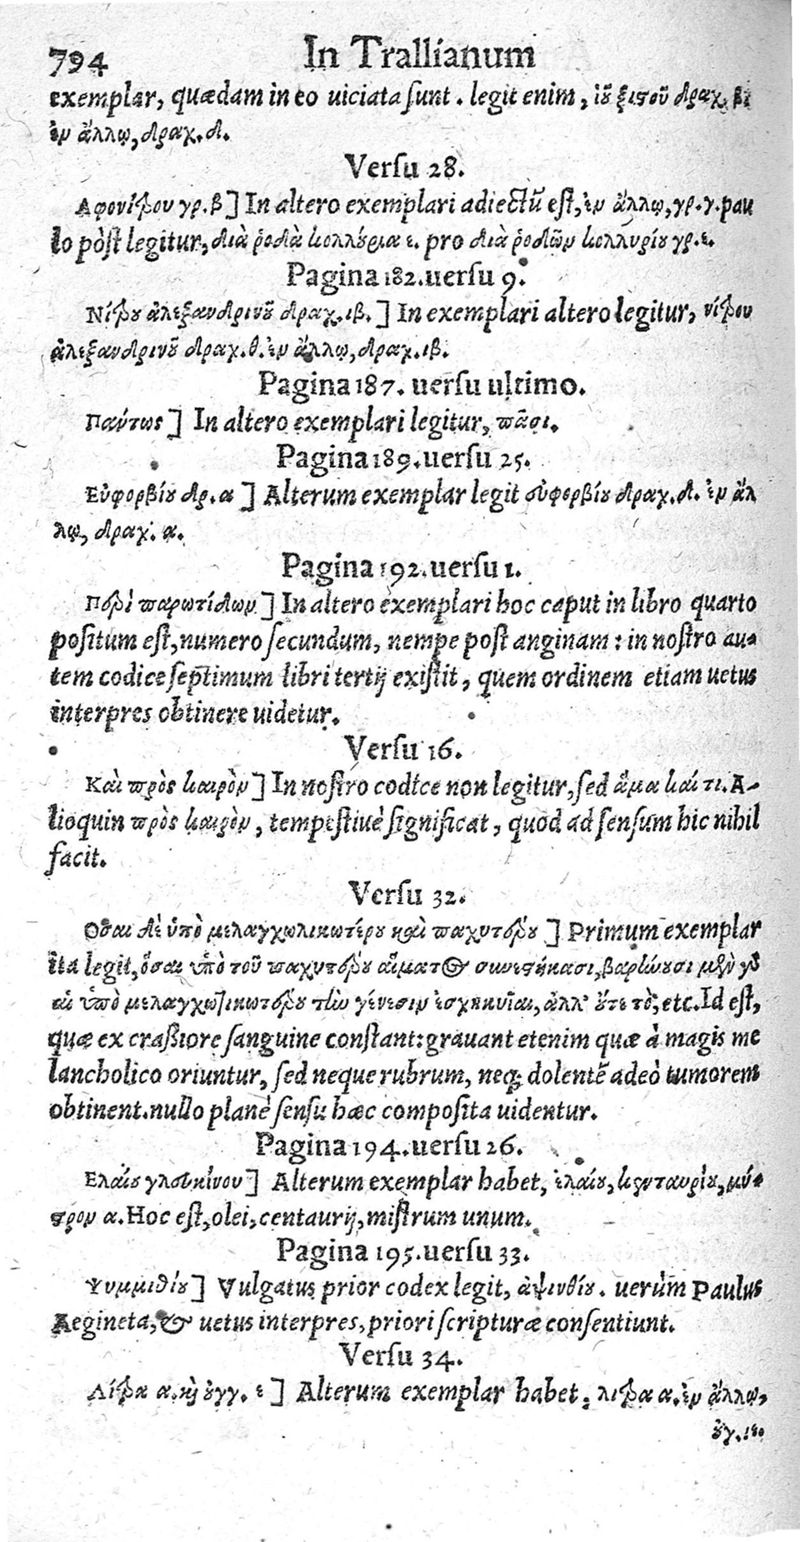 794 In Trallianum
exemplar, quædam in eo uiciata sunt. legit enim, ἰοῦ ξυστοῦ δραχ. β
ἐν ἄλλῳ, δραχ. δ.
Versu 28.
Αφονίτρου γρ. β] In altero exemplari adiectū est, ἐν ἄλλῳ, γρ. γ. pau
lo pòst legitur, διὰ ῥοδὰ κολλύρια ε. pro διὰ ῥοδῶν κολλυρίου γρ. ε.
Pagina 182. uersu 9.
Νίτρου ἀλεξανδρινοῦ δραχ. ιβ.] In exemplari altero legitur, νίτρου
ἀλεξανδρινοῦ δραχ. θ. ἐν ἄλλῳ, δραχ. ιβ.
Pagina 187. uersu ultimo.
Παύτως] In altero exemplari legitur, πᾶσι.
Pagina 189. uersu 25.
Εὐφορβίου δρ. α] Alterum exemplar legit εὐφορβίου δραχ. δ. ἐν ἄλ
λῳ, δραχ. α.
Pagina 192. uersu 1.
Περὶ παρωτίδων] In altero exemplari hoc caput in libro quarto
positum est, numero secundum, nempe post anginam: in nostro au-
tem codice septimum libri tertij existit, quem ordinem etiam uetus
interpres obtinere uidetur.
Versu 16.
Καὶ πρὸς καιρὸν] In nostro codice non legitur, sed ἅμα καί τι. A-
lioquin πρὸς καιρὸν, tempestiuè significat, quod ad sensum hic nihil
facit.
Versu 32.
Οσαι δὲ ὑπὸ μελαγχολικωτέρου καὶ παχυτέρου] Primum exemplar
ita legit, ὅσαι ὑπὸ τοῦ παχυτέρου αἵματος συνεστήκασι, βαρύνουσι μὲν γὸ
αἱ ὑπὸ μελαγχολικωτέρου τὴν γένεσιν ἐσχηκυῖαι, ἀλλ' οὔτε τὸ, etc. Id est,
quæ ex crassiore sanguine constant: grauant etenim quæ à magis me
lancholico oriuntur, sed neque rubrum, neq; dolentē adeò tumorem
obtinent. nullo planè sensu hæc composita uidentur.
Pagina 194. uersu 26.
Ελαίου γλευκίνου] Alterum exemplar habet, ἐλαίου, κενταυρίου, μύ-
στρον α. Hoc est, olei, centaurij, mistrum unum.
Pagina 195. uersu 33.
Ψυμμιθίου] Vulgatus prior codex legit, ἀψινθίου. uerùm Paulus
Aegineta, & uetus interpres, priori scripturæ consentiunt.
Versu 34.
Λίτρα α. καὶ ουγγ. ε] Alterum exemplar habet, λίτρα α. ἐν ἄλλῳ,